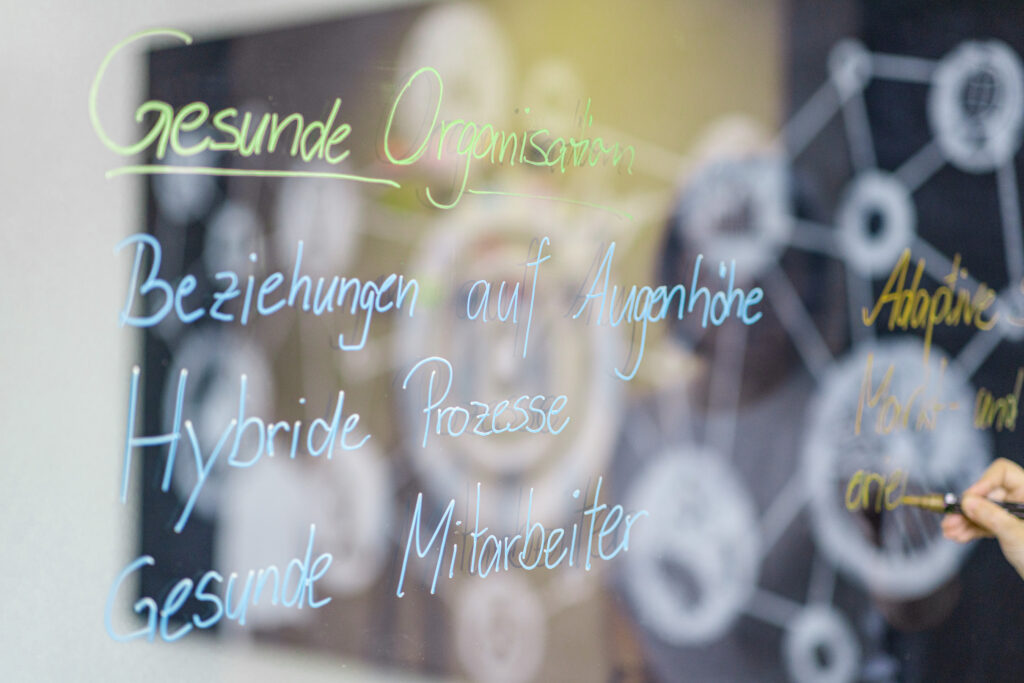 Gesunde Organisation
Beziehungen auf Augenhöhe
Hybride Prozesse
Gesunde Mitarbeiter
Adaptive
Markt- und
orie